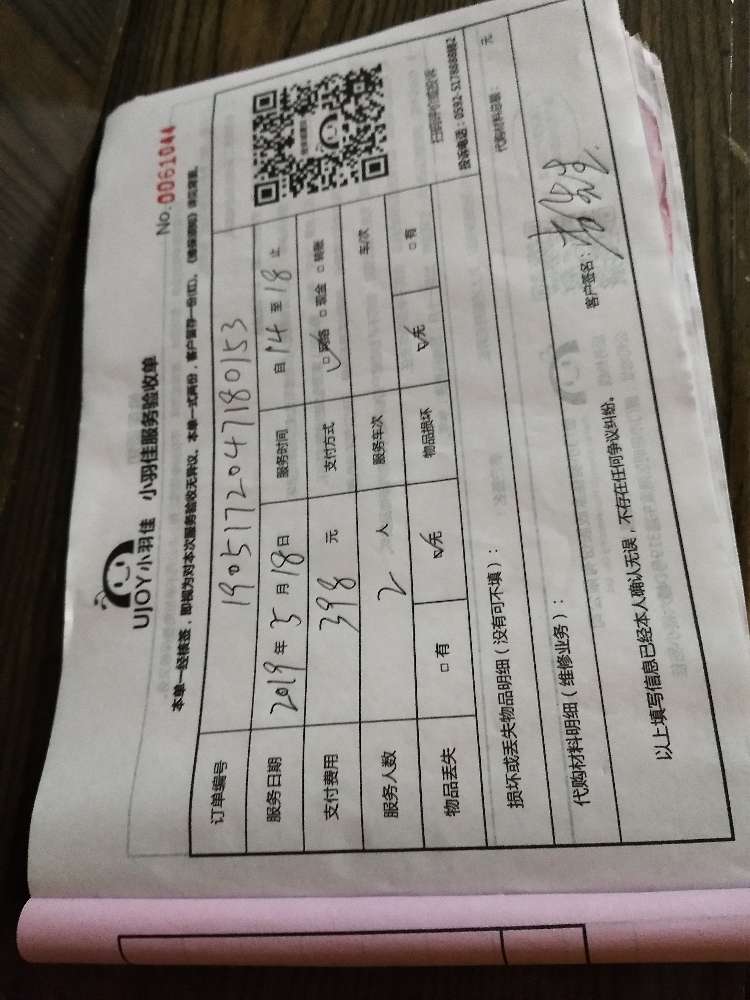 No.0061044
UJOY小羽佳 小羽佳服务验收单
本单一经核签，即视为对本次服务验收无异议，本单一式两份，客户留存一份(红)，
订单编号 1905172047180153
服务日期 2019年5月18日 服务时间 自14至18止
支付费用 398 元 支付方式 □网络 □现金 □转账
服务人数 2 人 服务车次 车/次
物品丢失 □有 □无 物品损坏 □无 □有
扫码评价或投诉
投诉电话：0592-5178888转2
损坏或丢失物品明细（没有可不填）：
代购材料明细（维修业务）： 代购材料总额： 元
以上填写信息已经本人确认无误，不存在任何争议纠纷。
客户签名：